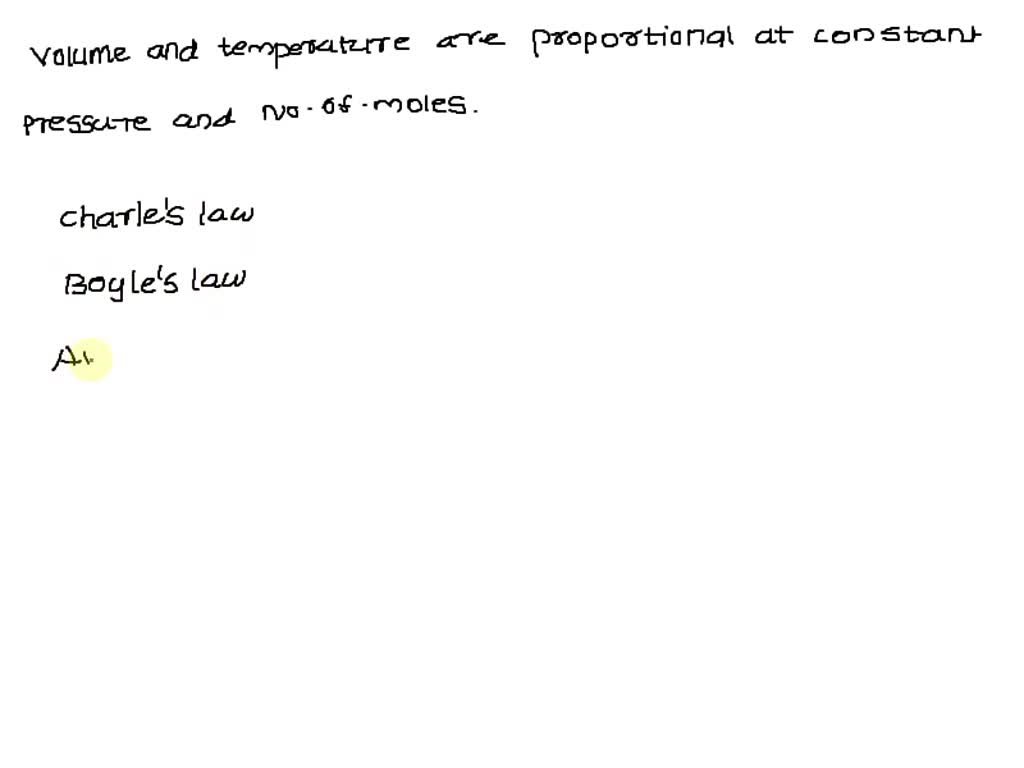 Volume and temperature are proportional at constant
pressure and No. of. moles.
Charle's law
Boyle's law
Av